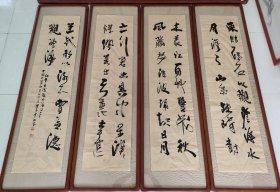 東臨碣石以觀滄海水
何澹澹山島竦峙樹
木叢生百草豐茂秋
風蕭瑟洪波湧起日月
之行若出其中星漢
燦爛若出其裏幸甚
至哉歌以詠志曹孟德
觀滄海